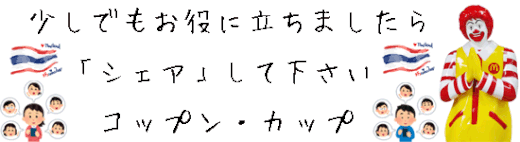 少しでもお役に立ちましたら
「シェア」して下さい
コップン・カップ